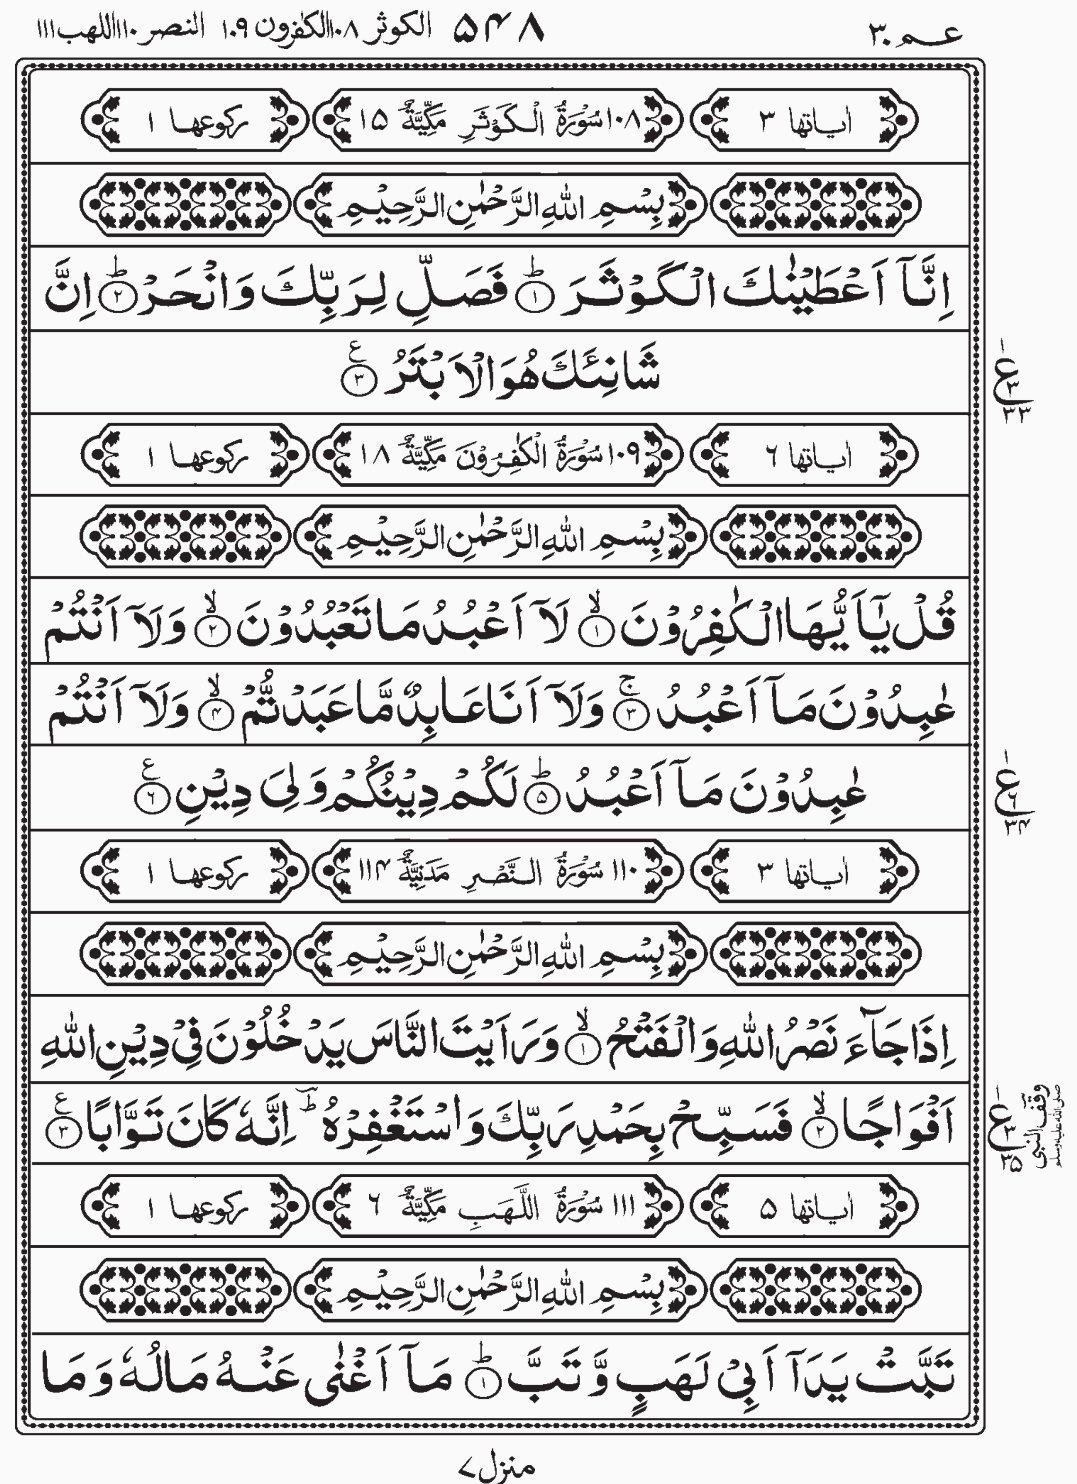 عم ٣٠ ۵۴۸ الكوثر ١٠٨ الكٰفرون ١٠٩ النصر ١١٠ اللهب ١١١
اٰياتها ٣ ١٠٨ سُوْرَةُ الْكَوْثَرِ مَكِّيَّةٌ ١۵ ركوعها ١
بِسْمِ اللّٰهِ الرَّحْمٰنِ الرَّحِيْمِ
اِنَّآ اَعْطَيْنٰكَ الْكَوْثَرَ ؕ﴿١﴾ فَصَلِّ لِرَبِّكَ وَانْحَرْ ؕ﴿٢﴾ اِنَّ
شَانِئَكَ هُوَ الْاَبْتَرُ ﴿٣﴾ ع
ع ١ ٣ ٣٣
اٰياتها ٦ ١٠٩ سُوْرَةُ الْكٰفِرُوْنَ مَكِّيَّةٌ ١٨ ركوعها ١
بِسْمِ اللّٰهِ الرَّحْمٰنِ الرَّحِيْمِ
قُلْ يٰٓاَيُّهَا الْكٰفِرُوْنَ ۙ﴿١﴾ لَآ اَعْبُدُ مَا تَعْبُدُوْنَ ۙ﴿٢﴾ وَلَآ اَنْتُمْ
عٰبِدُوْنَ مَآ اَعْبُدُ ۚ﴿٣﴾ وَلَآ اَنَا عَابِدٌ مَّا عَبَدْتُّمْ ۙ﴿۴﴾ وَلَآ اَنْتُمْ
عٰبِدُوْنَ مَآ اَعْبُدُ ؕ﴿۵﴾ لَكُمْ دِيْنُكُمْ وَلِيَ دِيْنِ ﴿٦﴾ ع
ع ١ ٦ ٣۴
اٰياتها ٣ ١١٠ سُوْرَةُ النَّصْرِ مَدَنِيَّةٌ ١١۴ ركوعها ١
بِسْمِ اللّٰهِ الرَّحْمٰنِ الرَّحِيْمِ
اِذَا جَآءَ نَصْرُ اللّٰهِ وَالْفَتْحُ ۙ﴿١﴾ وَرَاَيْتَ النَّاسَ يَدْخُلُوْنَ فِيْ دِيْنِ اللّٰهِ
اَفْوَاجًا ۙ﴿٢﴾ فَسَبِّحْ بِحَمْدِ رَبِّكَ وَاسْتَغْفِرْهُ ؔؕ اِنَّهٗ كَانَ تَوَّابًا ﴿٣﴾ ع
ع ١ ٣ ٣۵ وقف النبي صلى الله عليه وسلم
اٰياتها ۵ ١١١ سُوْرَةُ اللَّهَبِ مَكِّيَّةٌ ٦ ركوعها ١
بِسْمِ اللّٰهِ الرَّحْمٰنِ الرَّحِيْمِ
تَبَّتْ يَدَآ اَبِيْ لَهَبٍ وَّتَبَّ ؕ﴿١﴾ مَآ اَغْنٰى عَنْهُ مَالُهٗ وَمَا
منزل ٧